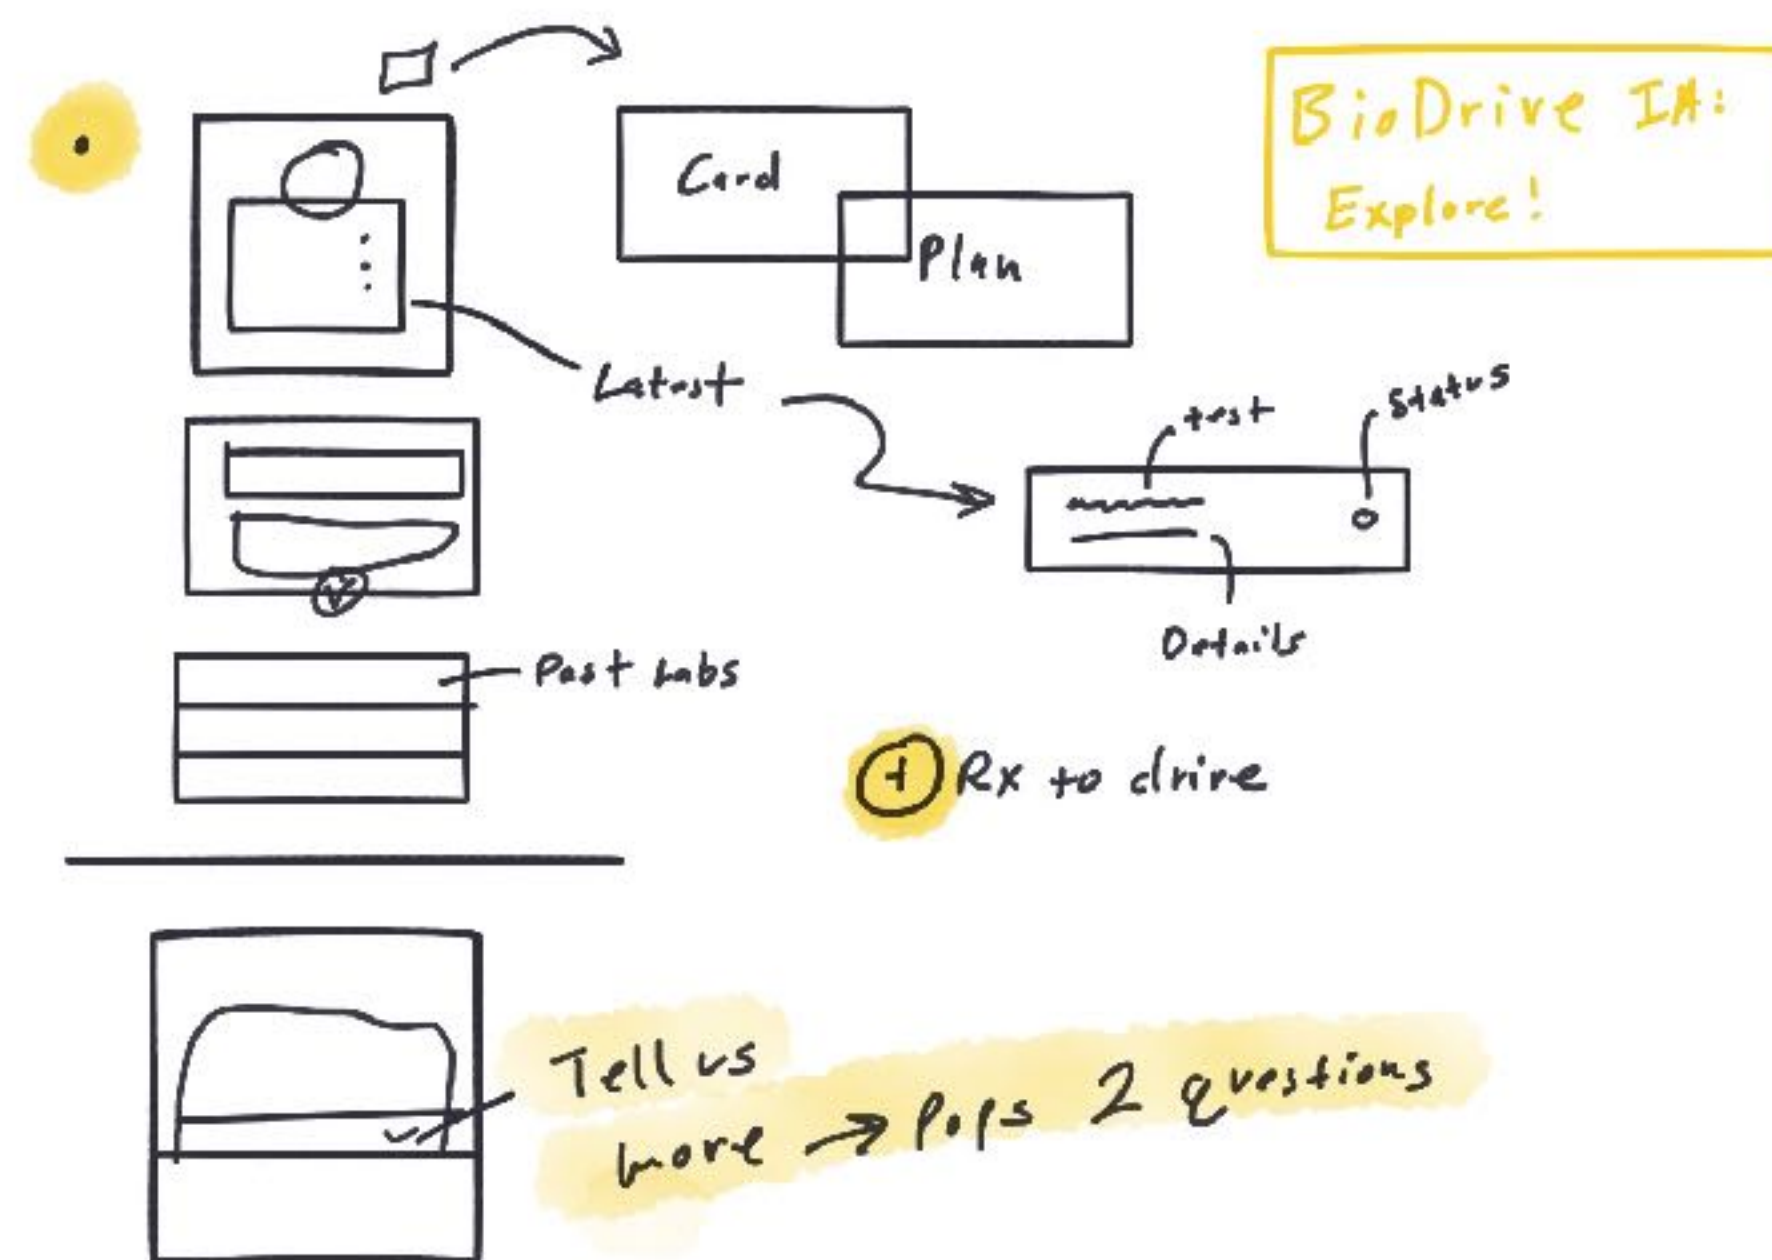 BioDrive IA:
Explore!
Card
Plan
Latest
test
Status
Details
Past Labs
+ Rx to drive
Tell us
more → Pops 2 questions